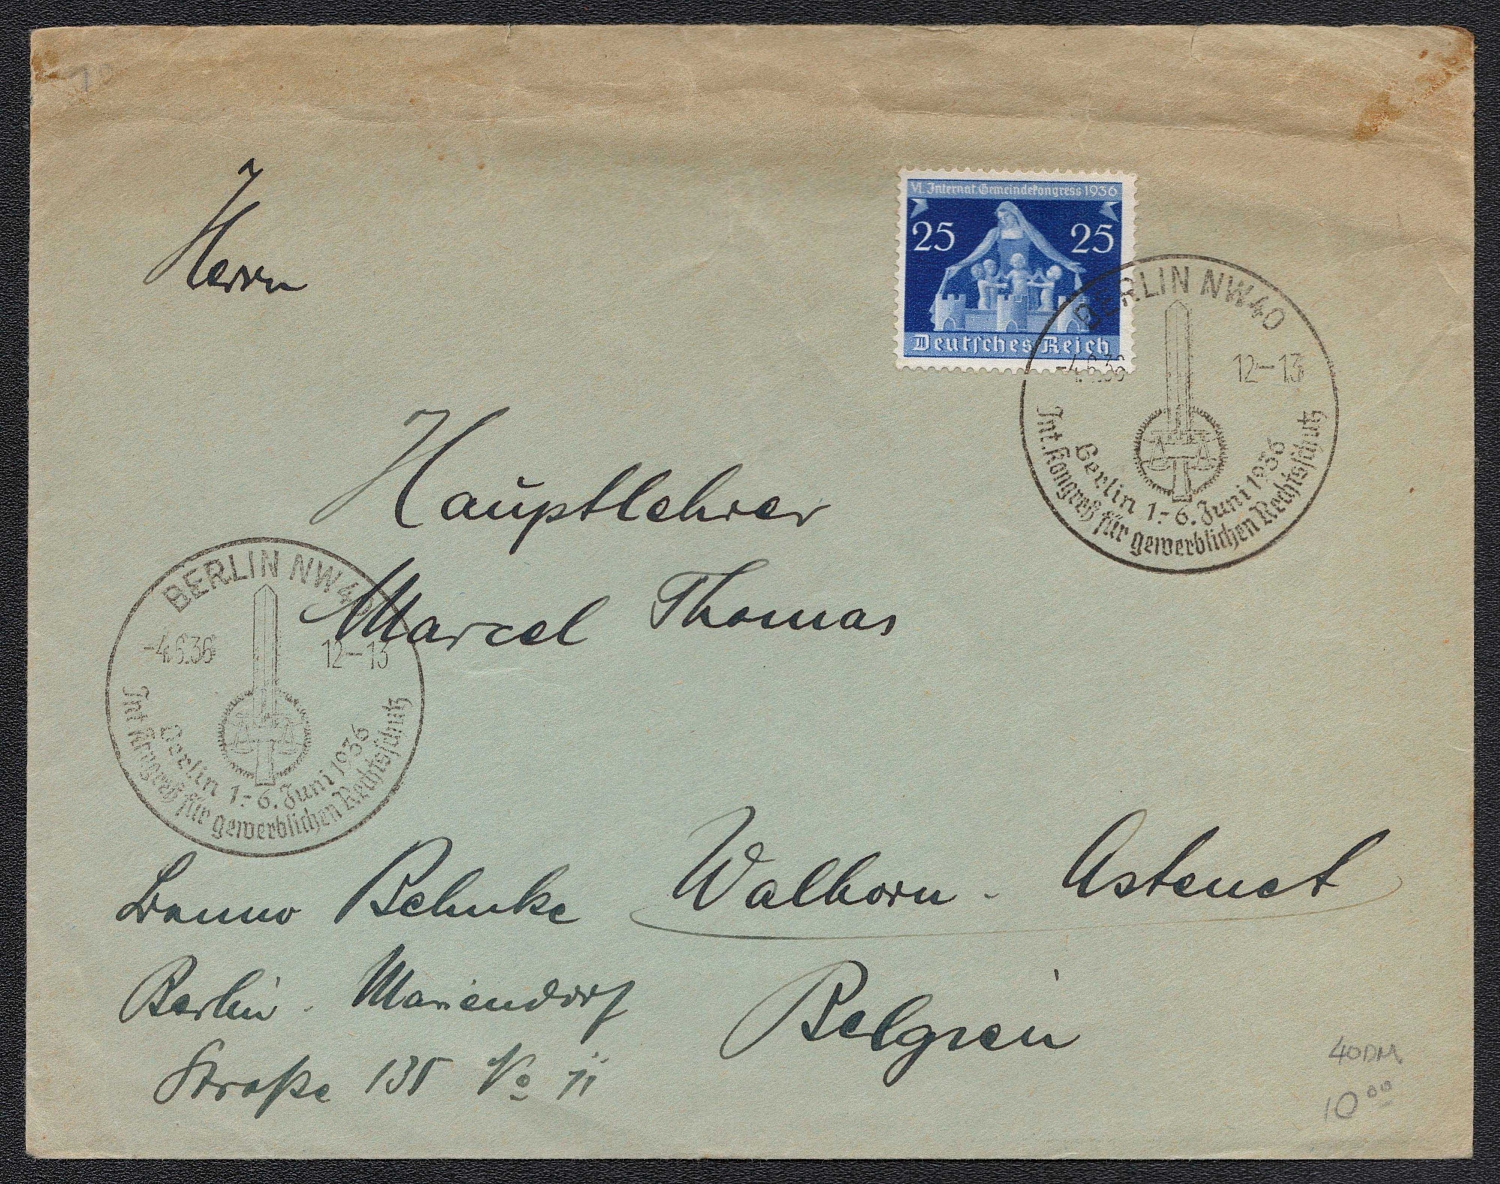 Herrn
VI. Internat. Gemeindekongress 1936
25 25
Deutsches Reich
BERLIN NW 40
-4.6.36 12-13
Berlin 1.-6. Juni 1936
Int. Kongreß für gewerblichen Rechtsschutz
Hauptlehrer
Marcel Thomas
BERLIN NW 40
-4.6.36 12-13
Berlin 1.-6. Juni 1936
Int. Kongreß für gewerblichen Rechtsschutz
Walhorn - Astenet
Belgien
Behnke
Berlin - Mariendorf
Straße
40DM
10 00